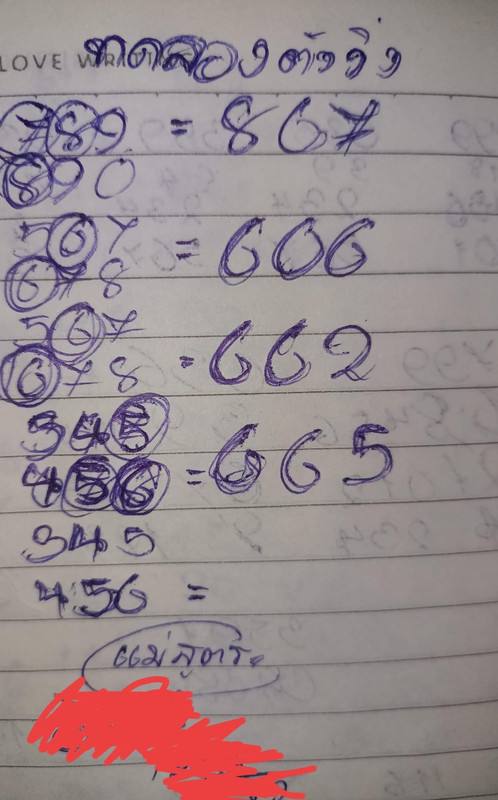 LOVE WRITING
ทดลองตัววิ่ง
789 = 867
890
567 = 606
678
567
678 = 662
345
456 = 665
345
456 =
แม่สูตร